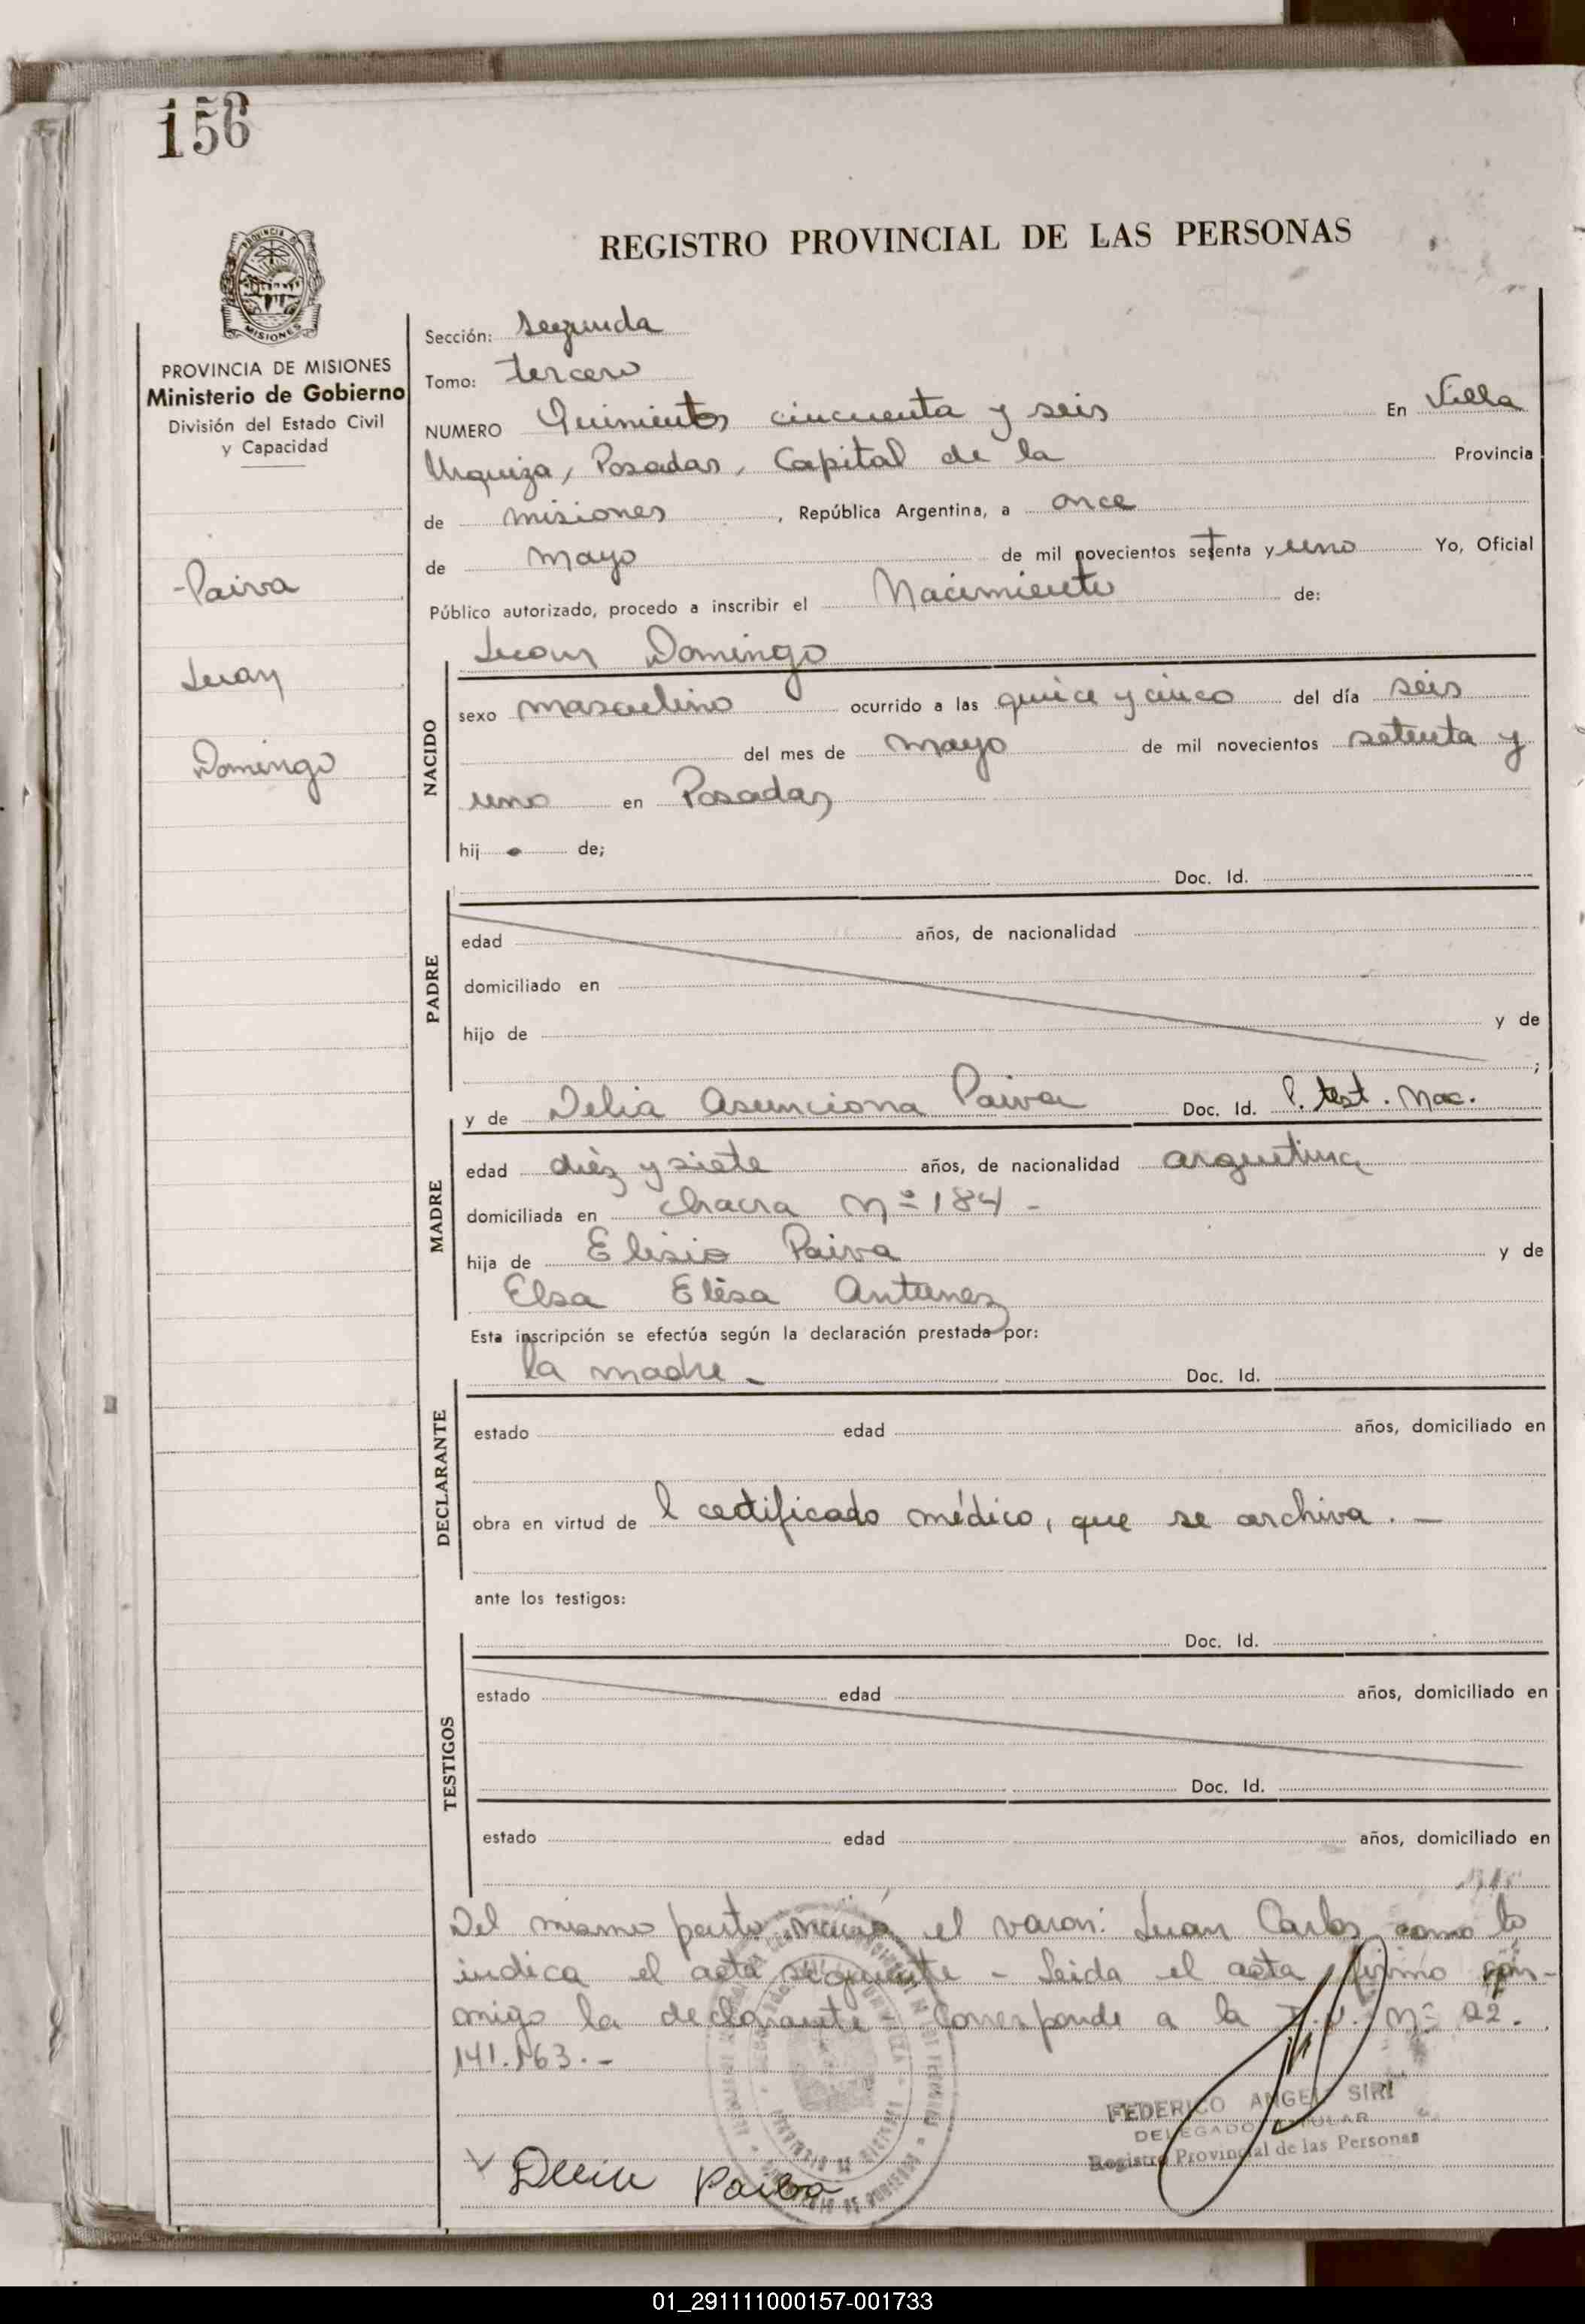 156
REGISTRO PROVINCIAL DE LAS PERSONAS
MISIONES
PROVINCIA DE MISIONES
Ministerio de Gobierno
División del Estado Civil
y Capacidad
Paiva
Juan
Domingo
Sección: Segunda
Tomo: tercero
NUMERO Quinientos cincuenta y seis En Villa
Urquiza, Posadas, Capital de la Provincia
de misiones, República Argentina, a once
de mayo de mil novecientos setenta y uno Yo, Oficial
Público autorizado, procedo a inscribir el Nacimiento de:
Juan Domingo
NACIDO
sexo masculino ocurrido a las quice y cinco del día seis
del mes de mayo de mil novecientos setenta y
uno en Posadas
hij o de;
Doc. Id.
PADRE
edad años, de nacionalidad
domiciliado en
hijo de y de
;
y de Delia Asunciona Paiva Doc. Id. P. test. Nac.
MADRE
edad diéz y siete años, de nacionalidad argentina
domiciliada en chacra Nº 184 -
hija de Elisio Paiva y de
Elsa Elisa Antunez
Esta inscripción se efectúa según la declaración prestada por:
la madre - Doc. Id.
DECLARANTE
estado edad años, domiciliado en
obra en virtud de l certificado médico, que se archiva. -
ante los testigos:
Doc. Id.
TESTIGOS
estado edad años, domiciliado en
Doc. Id.
estado edad años, domiciliado en
Del mismo parto nació el varon: Juan Carlos como lo
indica el acta siguiente - Leida el acta, firma con-
migo la declarante - Corresponde a la Nº 22.
141.163.-
FEDERICO ANGEL SIRI
DELEGADO TITULAR
Registro Provincial de las Personas
Paiva
01_291111000157-001733